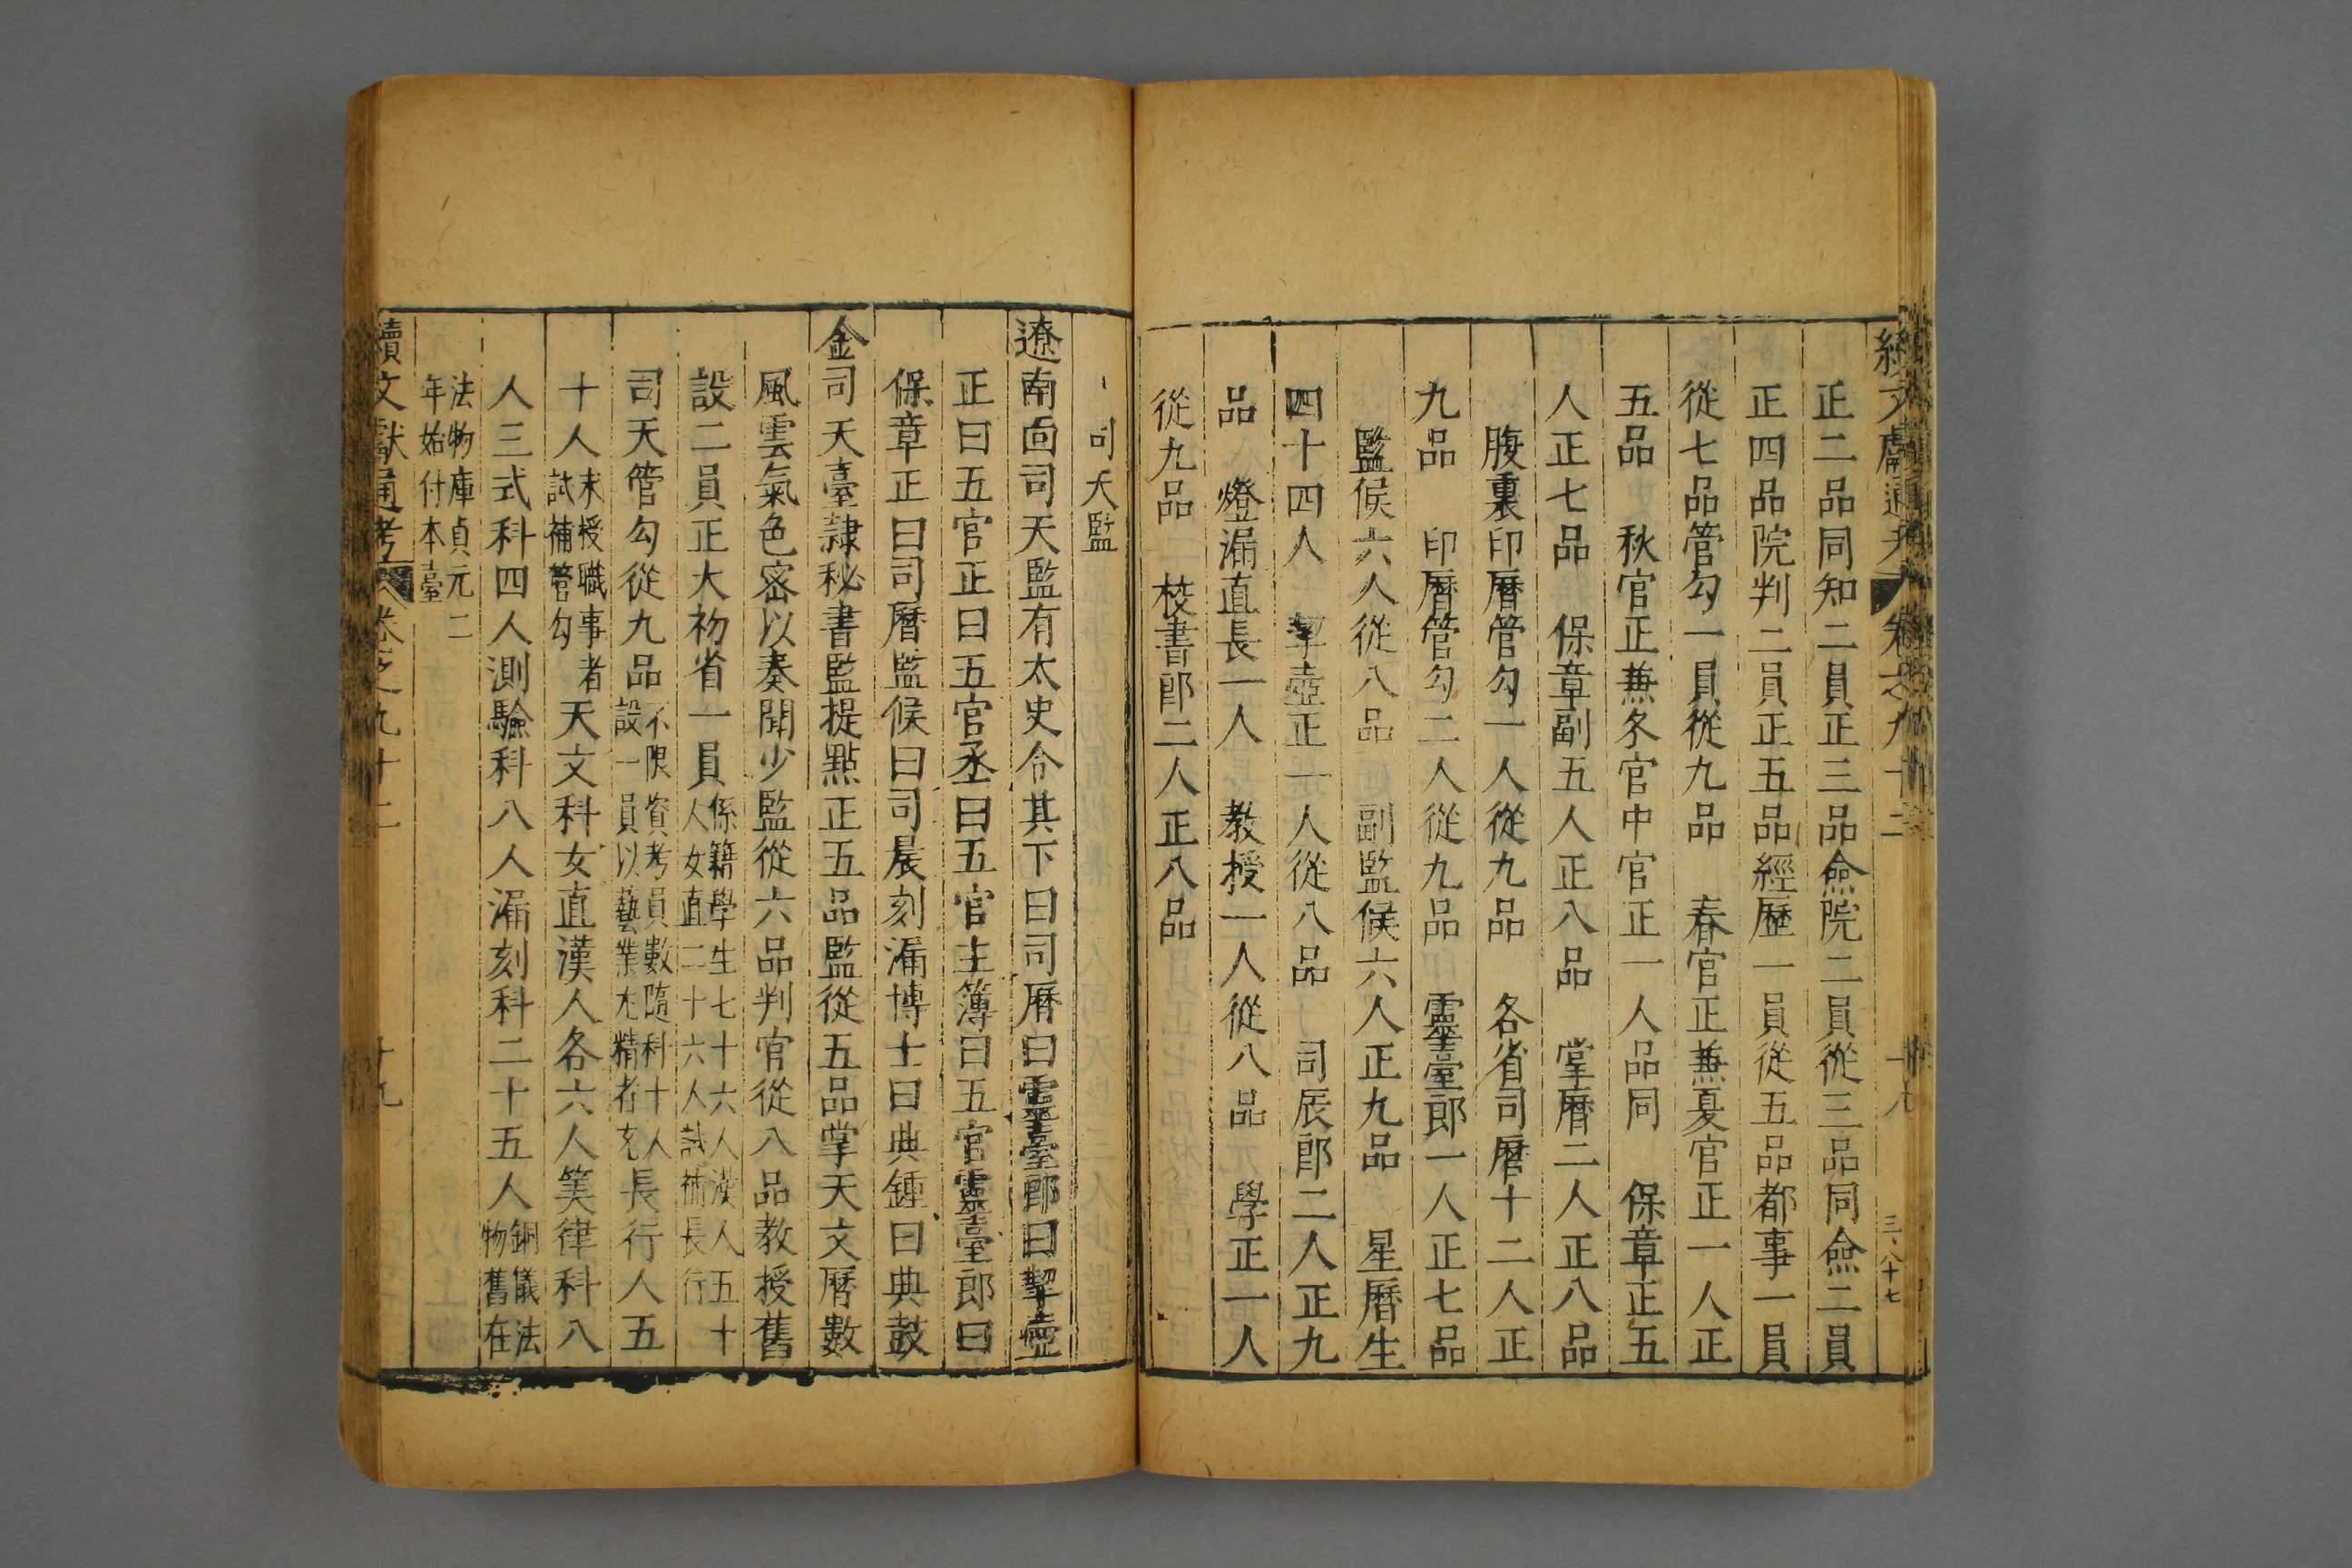 續文獻通考 卷之九十二 十八 三八十七
正二品同知二員正三品僉院二員從三品同僉二員
正四品院判二員正五品經歷一員從五品都事一員
從七品管勾一員從九品 春官正兼夏官正一人正
五品 秋官正兼冬官中官正一人品同 保章正五
人正七品 保章副五人正八品 掌曆二人正八品
腹裏印曆管勾一人從九品 各省司曆十二人正
九品 印曆管勾二人從九品 靈臺郎一人正七品
監候六人從八品 副監候六人正九品 星曆生
四十四人 挈壺正一人從八品 司辰郎二人正九
品 燈漏直長一人 教授一人從八品 學正一人
從九品 校書郎二人正八品
司天監
遼南面司天監有太史令其下曰司曆曰靈臺郎曰挈壺
正曰五官正曰五官丞曰五官主簿曰五官靈臺郎曰
保章正曰司曆監候曰司晨刻漏博士曰典鍾曰典鼓
金司天臺隷秘書監提點正五品監從五品掌天文曆數
風雲氣色密以奏聞少監從六品判官從八品教授舊
設二員正大初省一員係籍學生七十六人漢人五十人女直二十六人試補長行
司天管勾從九品不限資考員數隨科十人設一員以藝業尤精者充長行人五
十人未授職事者試補管勾天文科女直漢人各六人筭律科八
人三式科四人測驗科八人漏刻科二十五人銅儀法物舊在
法物庫貞元二年始付本臺
續文獻通考 卷之九十二 十九